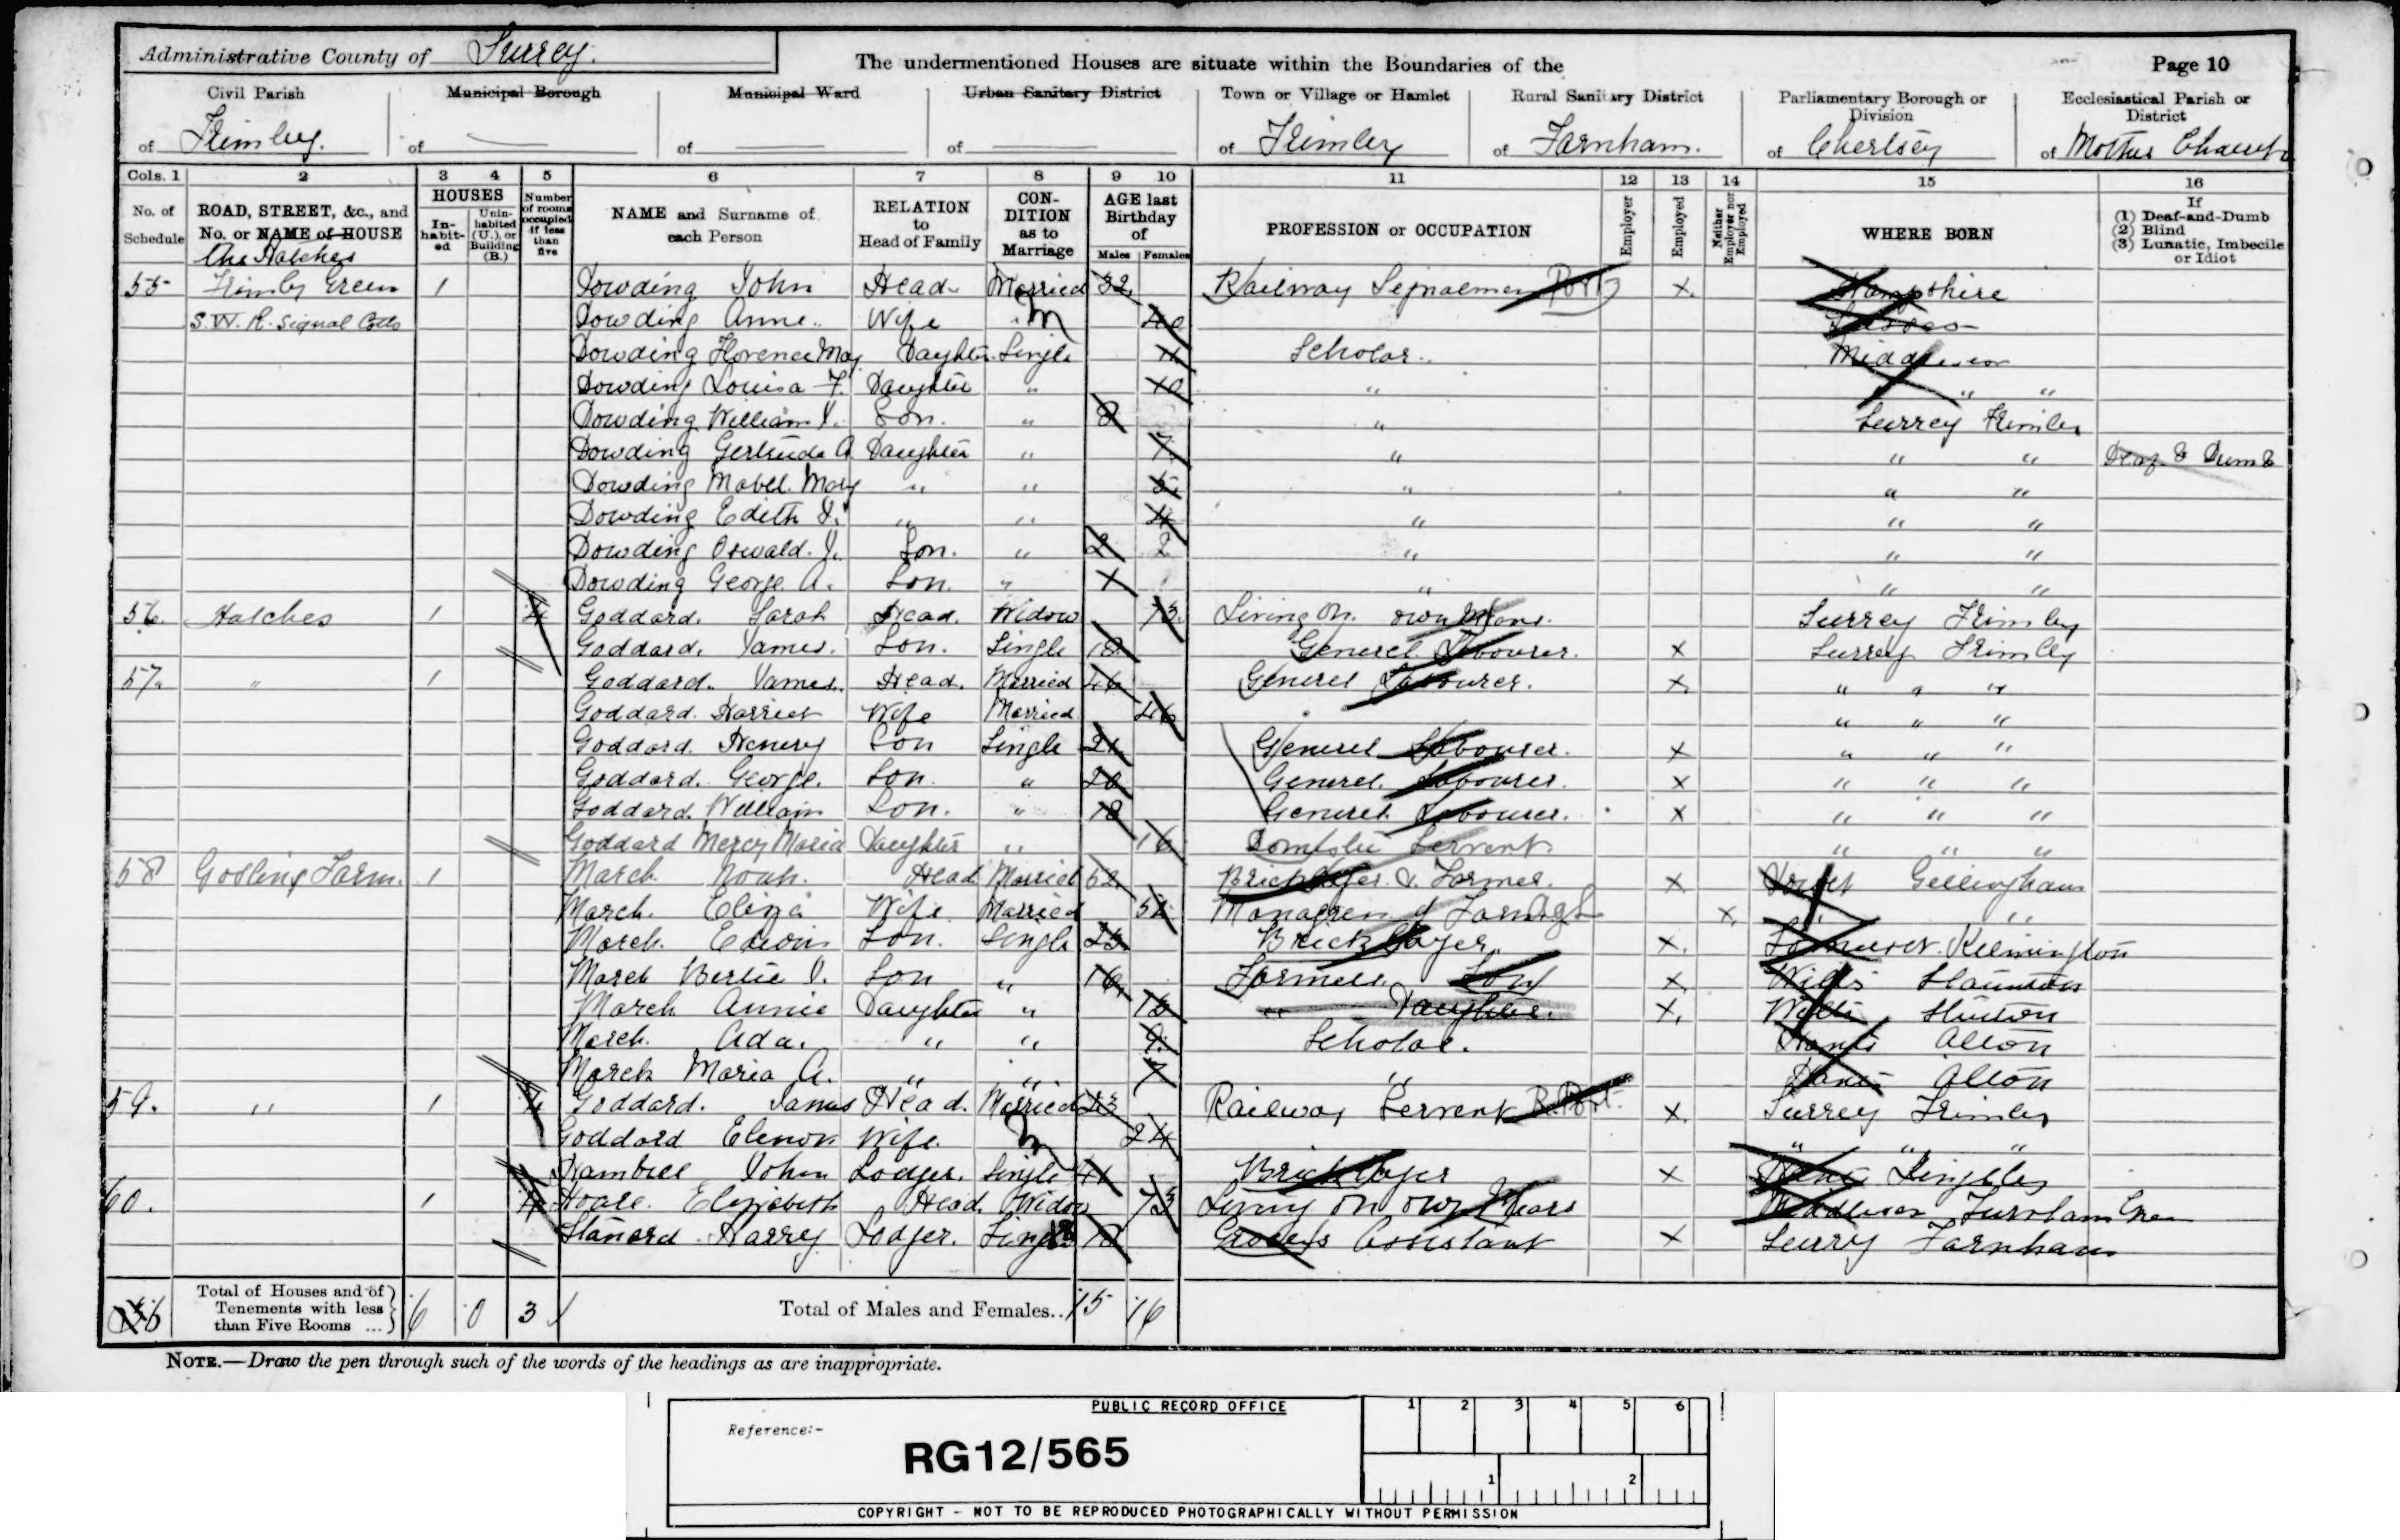 Administrative County of Surrey.
The undermentioned Houses are situate within the Boundaries of the
Page 10
Civil Parish of Frimley.
Municipal Borough of —
Municipal Ward of —
Urban Sanitary District of —
Town or Village or Hamlet of Frimley
Rural Sanitary District of Farnham.
Parliamentary Borough or Division of Chertsey
Ecclesiastical Parish or District of
Cols. 1 2 3 4 5 6 7 8 9 10 11 12 13 14 15 16
No. of Schedule
ROAD, STREET, &c., and No. or NAME of HOUSE
HOUSES
Inhabited
Uninhabited (U.), or Building (B.)
Number of rooms occupied if less than five
NAME and Surname of each Person
RELATION to Head of Family
CONDITION as to Marriage
AGE last Birthday of
Males Females
PROFESSION or OCCUPATION
Employer
Employed
Neither Employer nor Employed
WHERE BORN
If (1) Deaf-and-Dumb (2) Blind (3) Lunatic, Imbecile or Idiot
The Hatches
55 Frimley Green 1 Dowding John Head Married 32 Railway Signalman X Hampshire
S.W.R. Signal Cotts Dowding Anne Wife M 40 Sussex
Dowding Florence May Daughter Single 11 Scholar Middlesex
Dowding Louisa F. Daughter " 10 " " "
Dowding William J. Son. " 8 " Surrey Frimley
Dowding Gertrude A. Daughter " 7 " " " Deaf & Dumb
Dowding Mabel May " " 5 " " "
Dowding Edith J. " " 4 " " "
Dowding Oswald J. Son. " 2 2 " " "
Dowding George A. Son. " " " "
56. Hatches 1 4 Goddard. Sarah Head. Widow 73 Living on own Means. Surrey Frimley
Goddard. James. Son. Single 18 General Labourer. X Surrey Frimley
57. " 1 Goddard. James. Head. Married 46 General Labourer. X " " "
Goddard. Harriet Wife Married 46 " " "
Goddard. Henery Son Single 21 General Labourer. X " " "
Goddard. George. Son. " 20 General Labourer. X " " "
Goddard. William Son. " 18 General Labourer. X " " "
Goddard Mercy Maria Daughter " 16 Domestic Servant. " " "
58 Gosling Farm. 1 March Noah. Head Married 52 Bricklayer & Farmer. X Dorset Gillingham
March. Eliza Wife. Married 52 X " "
March. Edwin Son. Single 23 Bricklayer. X. Somerset. Kilmington
March Bertie J. Son " 16 Farmers Son X Wilts
March Annie Daughter " 13 " Daughter. X. Wilts
March. Ada. " " 9 Scholar. Hants Alton
March Maria A. " " 7 " Hants Alton
59. " 1 4 Goddard. James Head. Married 23 Railway Servant R. Port. X. Surrey Frimley
Goddard Elenor Wife. M 24 " " "
John Lodger. Single 41 Bricklayer X Hants
60. 1 4 Hoare. Elizabeth Head. Widow 73 Living on own Means Middlesex Turnham Green
Stanard Harry Lodger. Single 18 Grocers Assistant X Surry Farnham
Total of Houses and of Tenements with less than Five Rooms ... 6 0 3
Total of Males and Females.. 15 16
NOTE.—Draw the pen through such of the words of the headings as are inappropriate.
PUBLIC RECORD OFFICE
1 2 3 4 5 6
Reference:-
RG12/565
1 2
COPYRIGHT - NOT TO BE REPRODUCED PHOTOGRAPHICALLY WITHOUT PERMISSION